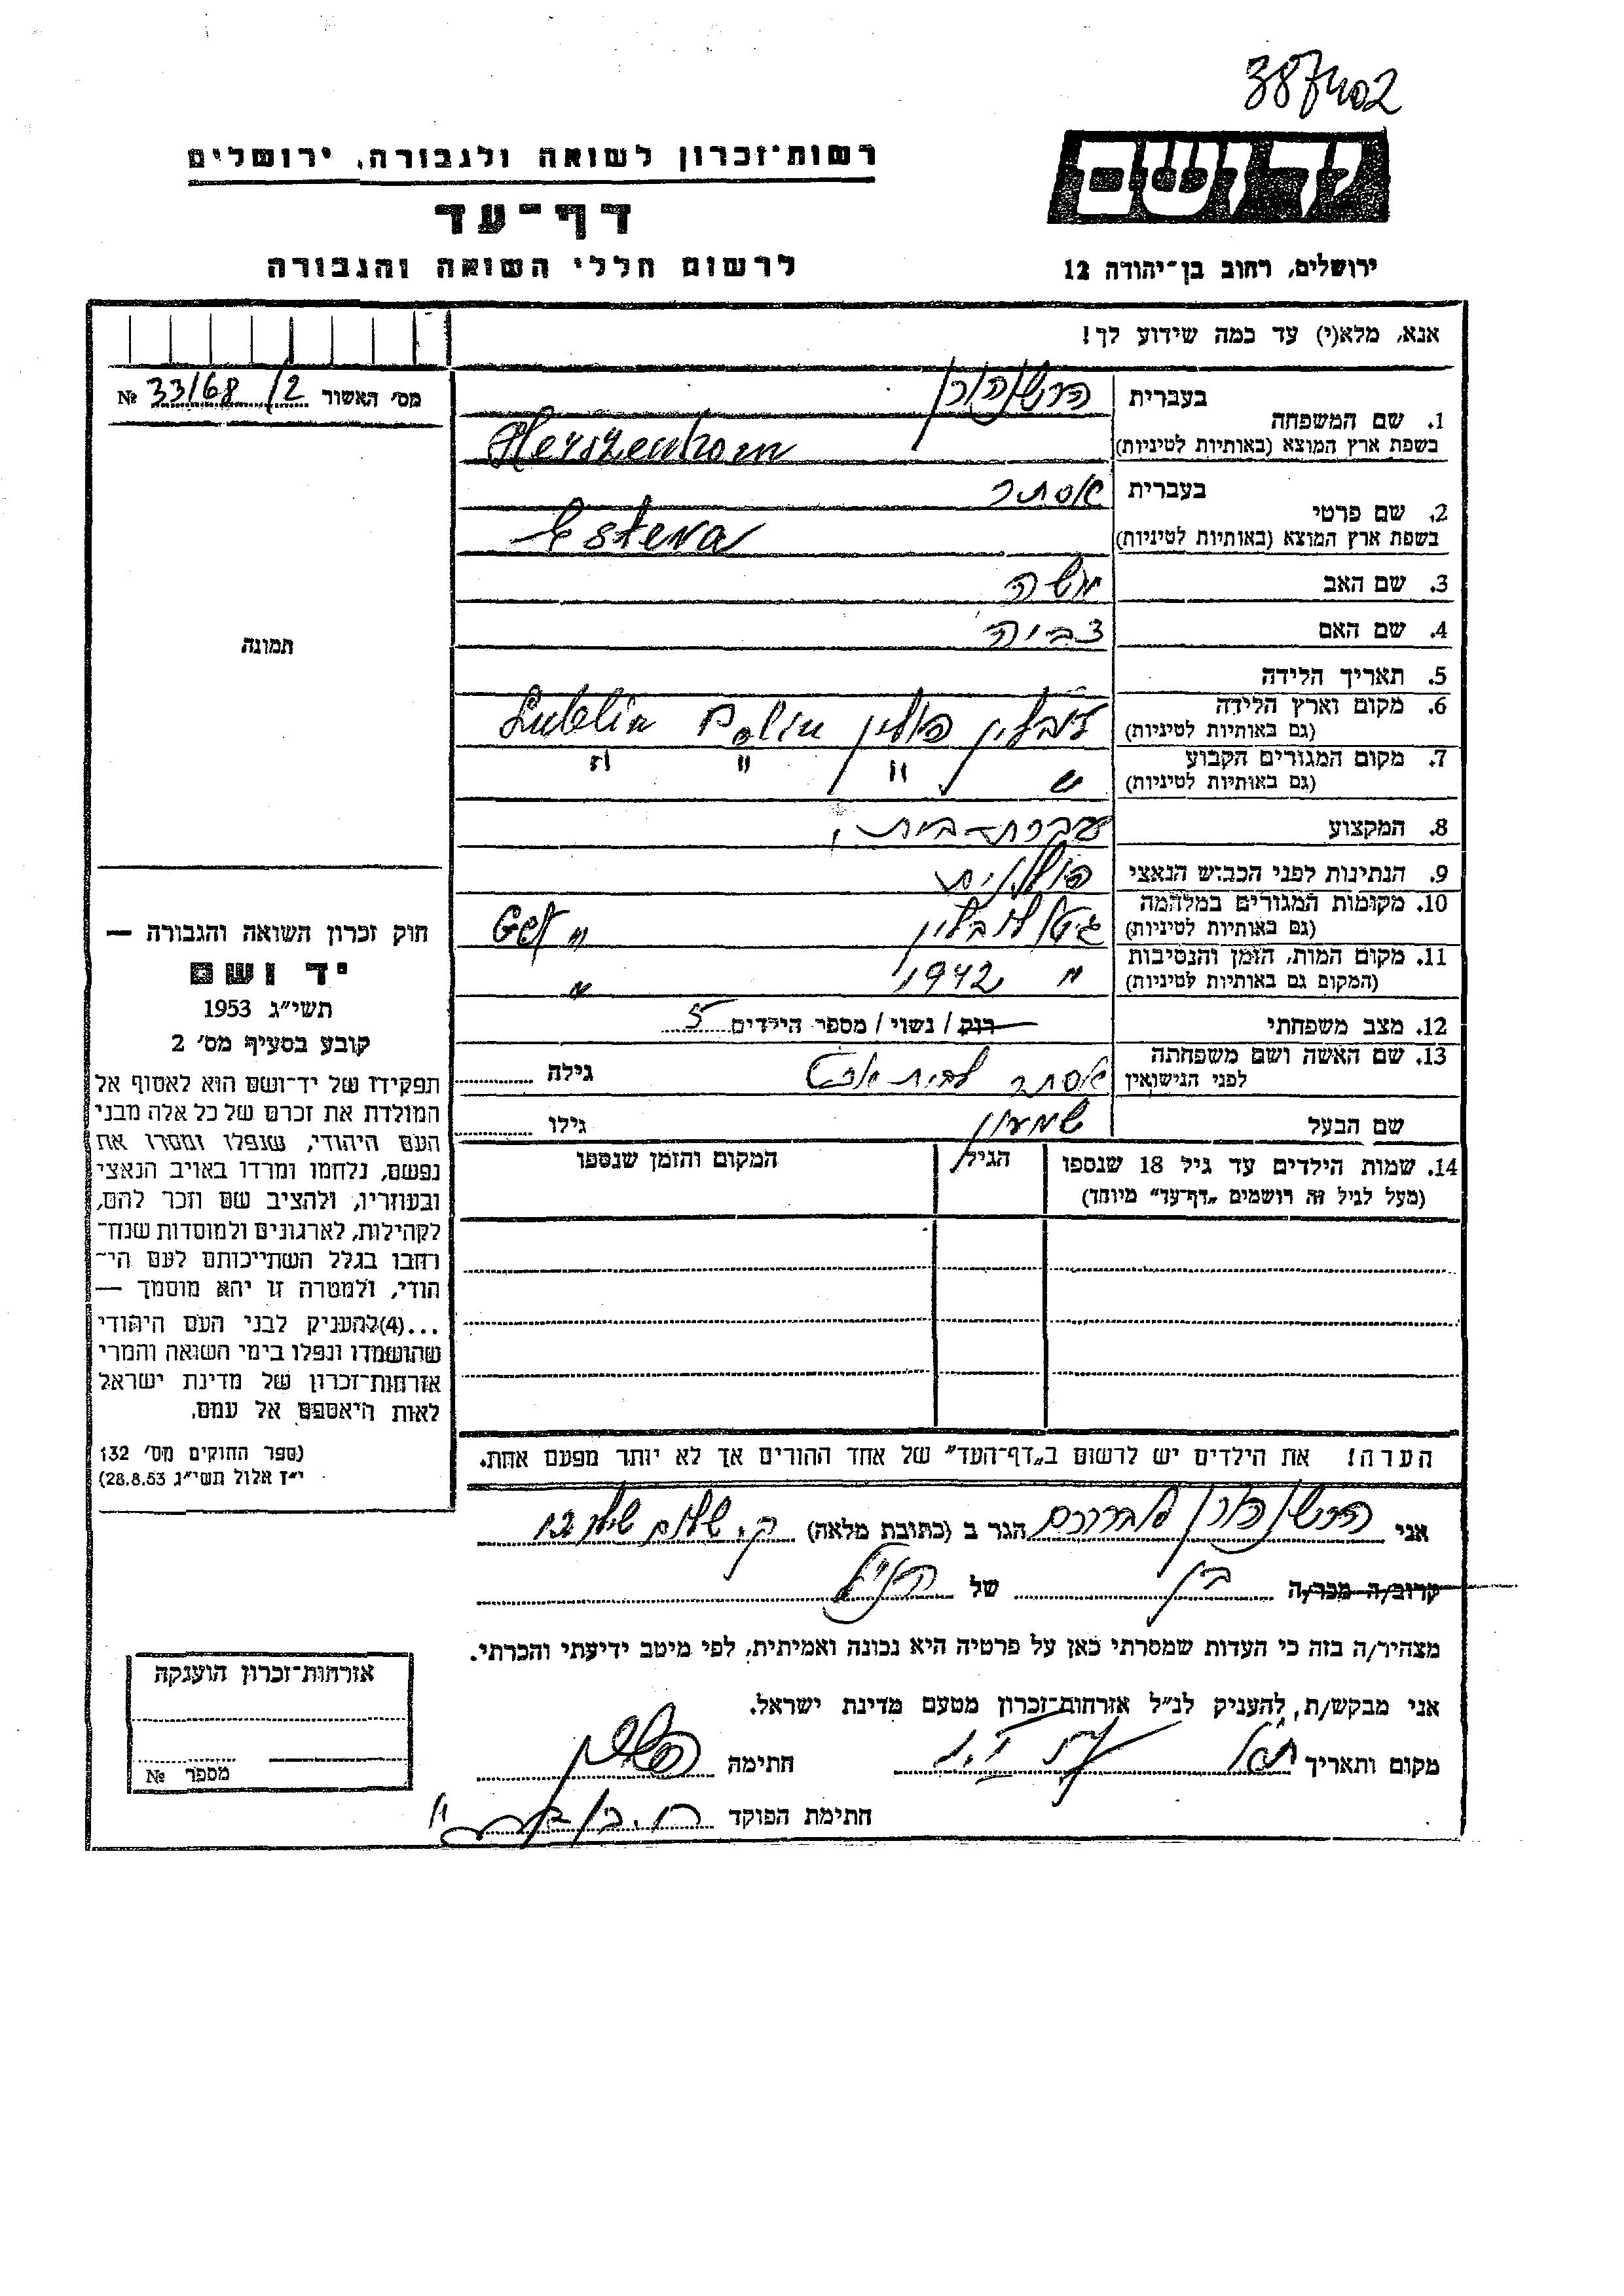 387402
ידושם
רשות־זכרון לשואה ולגבורה, ירושלים
דף־עד
לרשום חללי השואה והגבורה
ירושלים, רחוב בן־יהודה 12
אנא, מלא(י) עד כמה שידוע לך!
מס' האשור № 33/68 /2
תמונה
חוק זכרון השואה והגבורה —
יד ושם
תשי"ג 1953
קובע בסעיף מס' 2
תפקידו של יד־ושם הוא לאסוף אל
המולדת את זכרם של כל אלה מבני
העם היהודי, שנפלו ומסרו את
נפשם, נלחמו ומרדו באויב הנאצי
ובעוזריו, ולהציב שם וזכר להם,
לקהילות, לארגונים ולמוסדות שנח־
רחבו בגלל השתייכותם לעם הי־
הודי, ולמטרה זו יהא מוסמך —
...(4)להעניק לבני העם היהודי
שהושמדו ונפלו בימי השואה והמרי
אזרחות־זכרון של מדינת ישראל
לאות היאספם אל עמם.
(ספר החוקים מס' 132
י"ז אלול תשי"ג 28.8.53)
1. שם המשפחה בעברית הרשנהורן
בשפת ארץ המוצא (באותיות לטיניות) Herszenhorn
2. שם פרטי בעברית אסתר
בשפת ארץ המוצא (באותיות לטיניות) Estera
3. שם האב משה
4. שם האם צביה
5. תאריך הלידה
6. מקום וארץ הלידה לובלין פולין Lublin Polin
(גם באותיות לטיניות)
7. מקום המגורים הקבוע " " " "
(גם באותיות לטיניות)
8. המקצוע עקרת-בית
9. הנתינות לפני הכבוש הנאצי פולנית
10. מקומות המגורים במלחמה גיטו לובלין " Get
(גם באותיות לטיניות)
11. מקום המות, הזמן והנסיבות " 1942 "
(המקום גם באותיות לטיניות)
12. מצב משפחתי רוק / נשוי / מספר הילדים 5
13. שם האשה ושם משפחתה אסתר לבית גילה
לפני הנישואין
שם הבעל שמעון גילו
14. שמות הילדים עד גיל 18 שנספו הגיל המקום והזמן שנספו
(מעל לגיל זה רושמים „דף־עד" מיוחד)
הערה! את הילדים יש לרשום ב„דף־העד" של אחד ההורים אך לא יותר מפעם אחת.
אני הרשנהורן אברהם הגר ב (כתובת מלאה) ק. שלום
קרוב/ה מכר/ה בן של הנ"ל
מצהיר/ה בזה כי העדות שמסרתי כאן על פרטיה היא נכונה ואמיתית, לפי מיטב ידיעתי והכרתי.
אני מבקש/ת, להעניק לנ"ל אזרחות־זכרון מטעם מדינת ישראל.
מקום ותאריך חתימה
חתימת הפוקד
אזרחות־זכרון הוענקה
מספר №